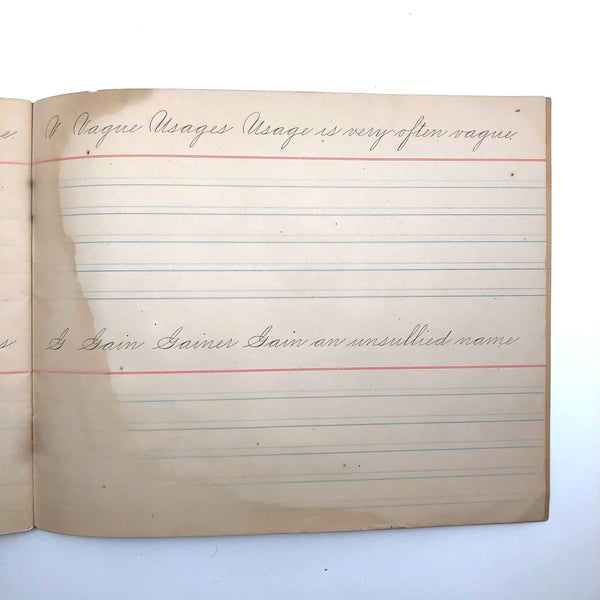 e
V Vague Usages Usage is very often vague.
s
G Gain Gainer Gain an unsullied name